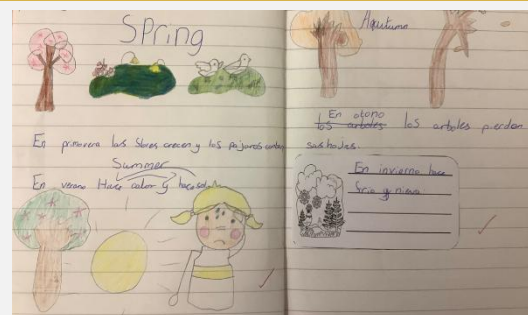 Spring
En primavera las flores crecen y los pajaros cantan
Summer
En verano Hace calor y hace sol
Aqutumn
En otono
los arboles los arboles pierdan
sus hodes.
En invierno hace
frio y nieva